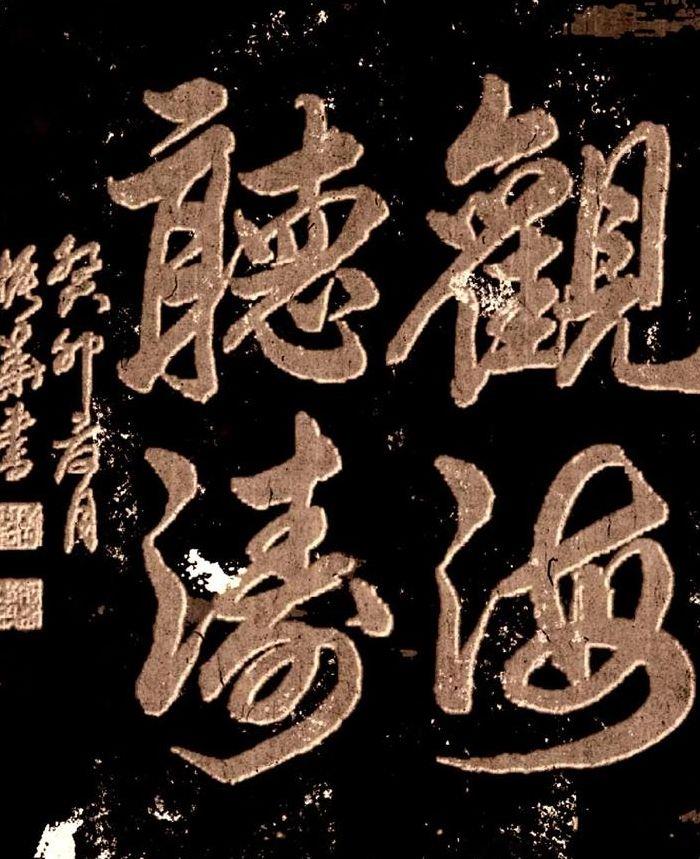 觀海
聽濤
癸卯春月
華書